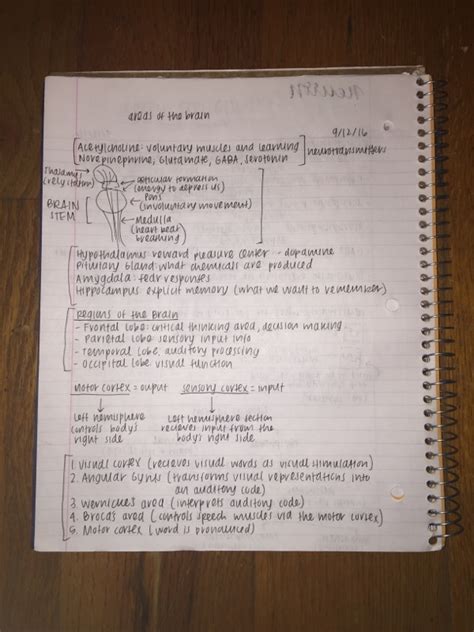 areas of the brain
9/12/16
Acetylcholine: voluntary muscles and learning
Norepinephrine, Glutamate, GABA, serotonin
neurotransmitters
Thalamus
(rely station)
reticular formation
(energy to depress us)
Pons
(involuntary movement)
BRAIN
STEM
Medulla
(heart beat
breathing)
Hypothalamus: reward pleasure center - dopamine
Pituitary Gland: what chemicals are produced
Amygdala: fear responses
Hippocampus: explicit memory (what we want to remember)
Regions of the Brain
- Frontal lobe: critical thinking area, decision making
- Parietal lobe sensory input info
- Temporal lobe, auditory processing
- Occipital lobe visual function
Motor cortex = ouput sensory cortex = input
Left hemisphere
controls body's
right side
Left hemisphere section
recieves input from the
body's right side
1. Visual cortex (recieves visual words as visual stimulation)
2. Angular Gyrus (transforms visual representations into
an auditory code)
3. Wernickes area (interprets auditory code)
4. Brocas area (controls speech muscles via the motor cortex)
5. Motor cortex (word is pronounced)